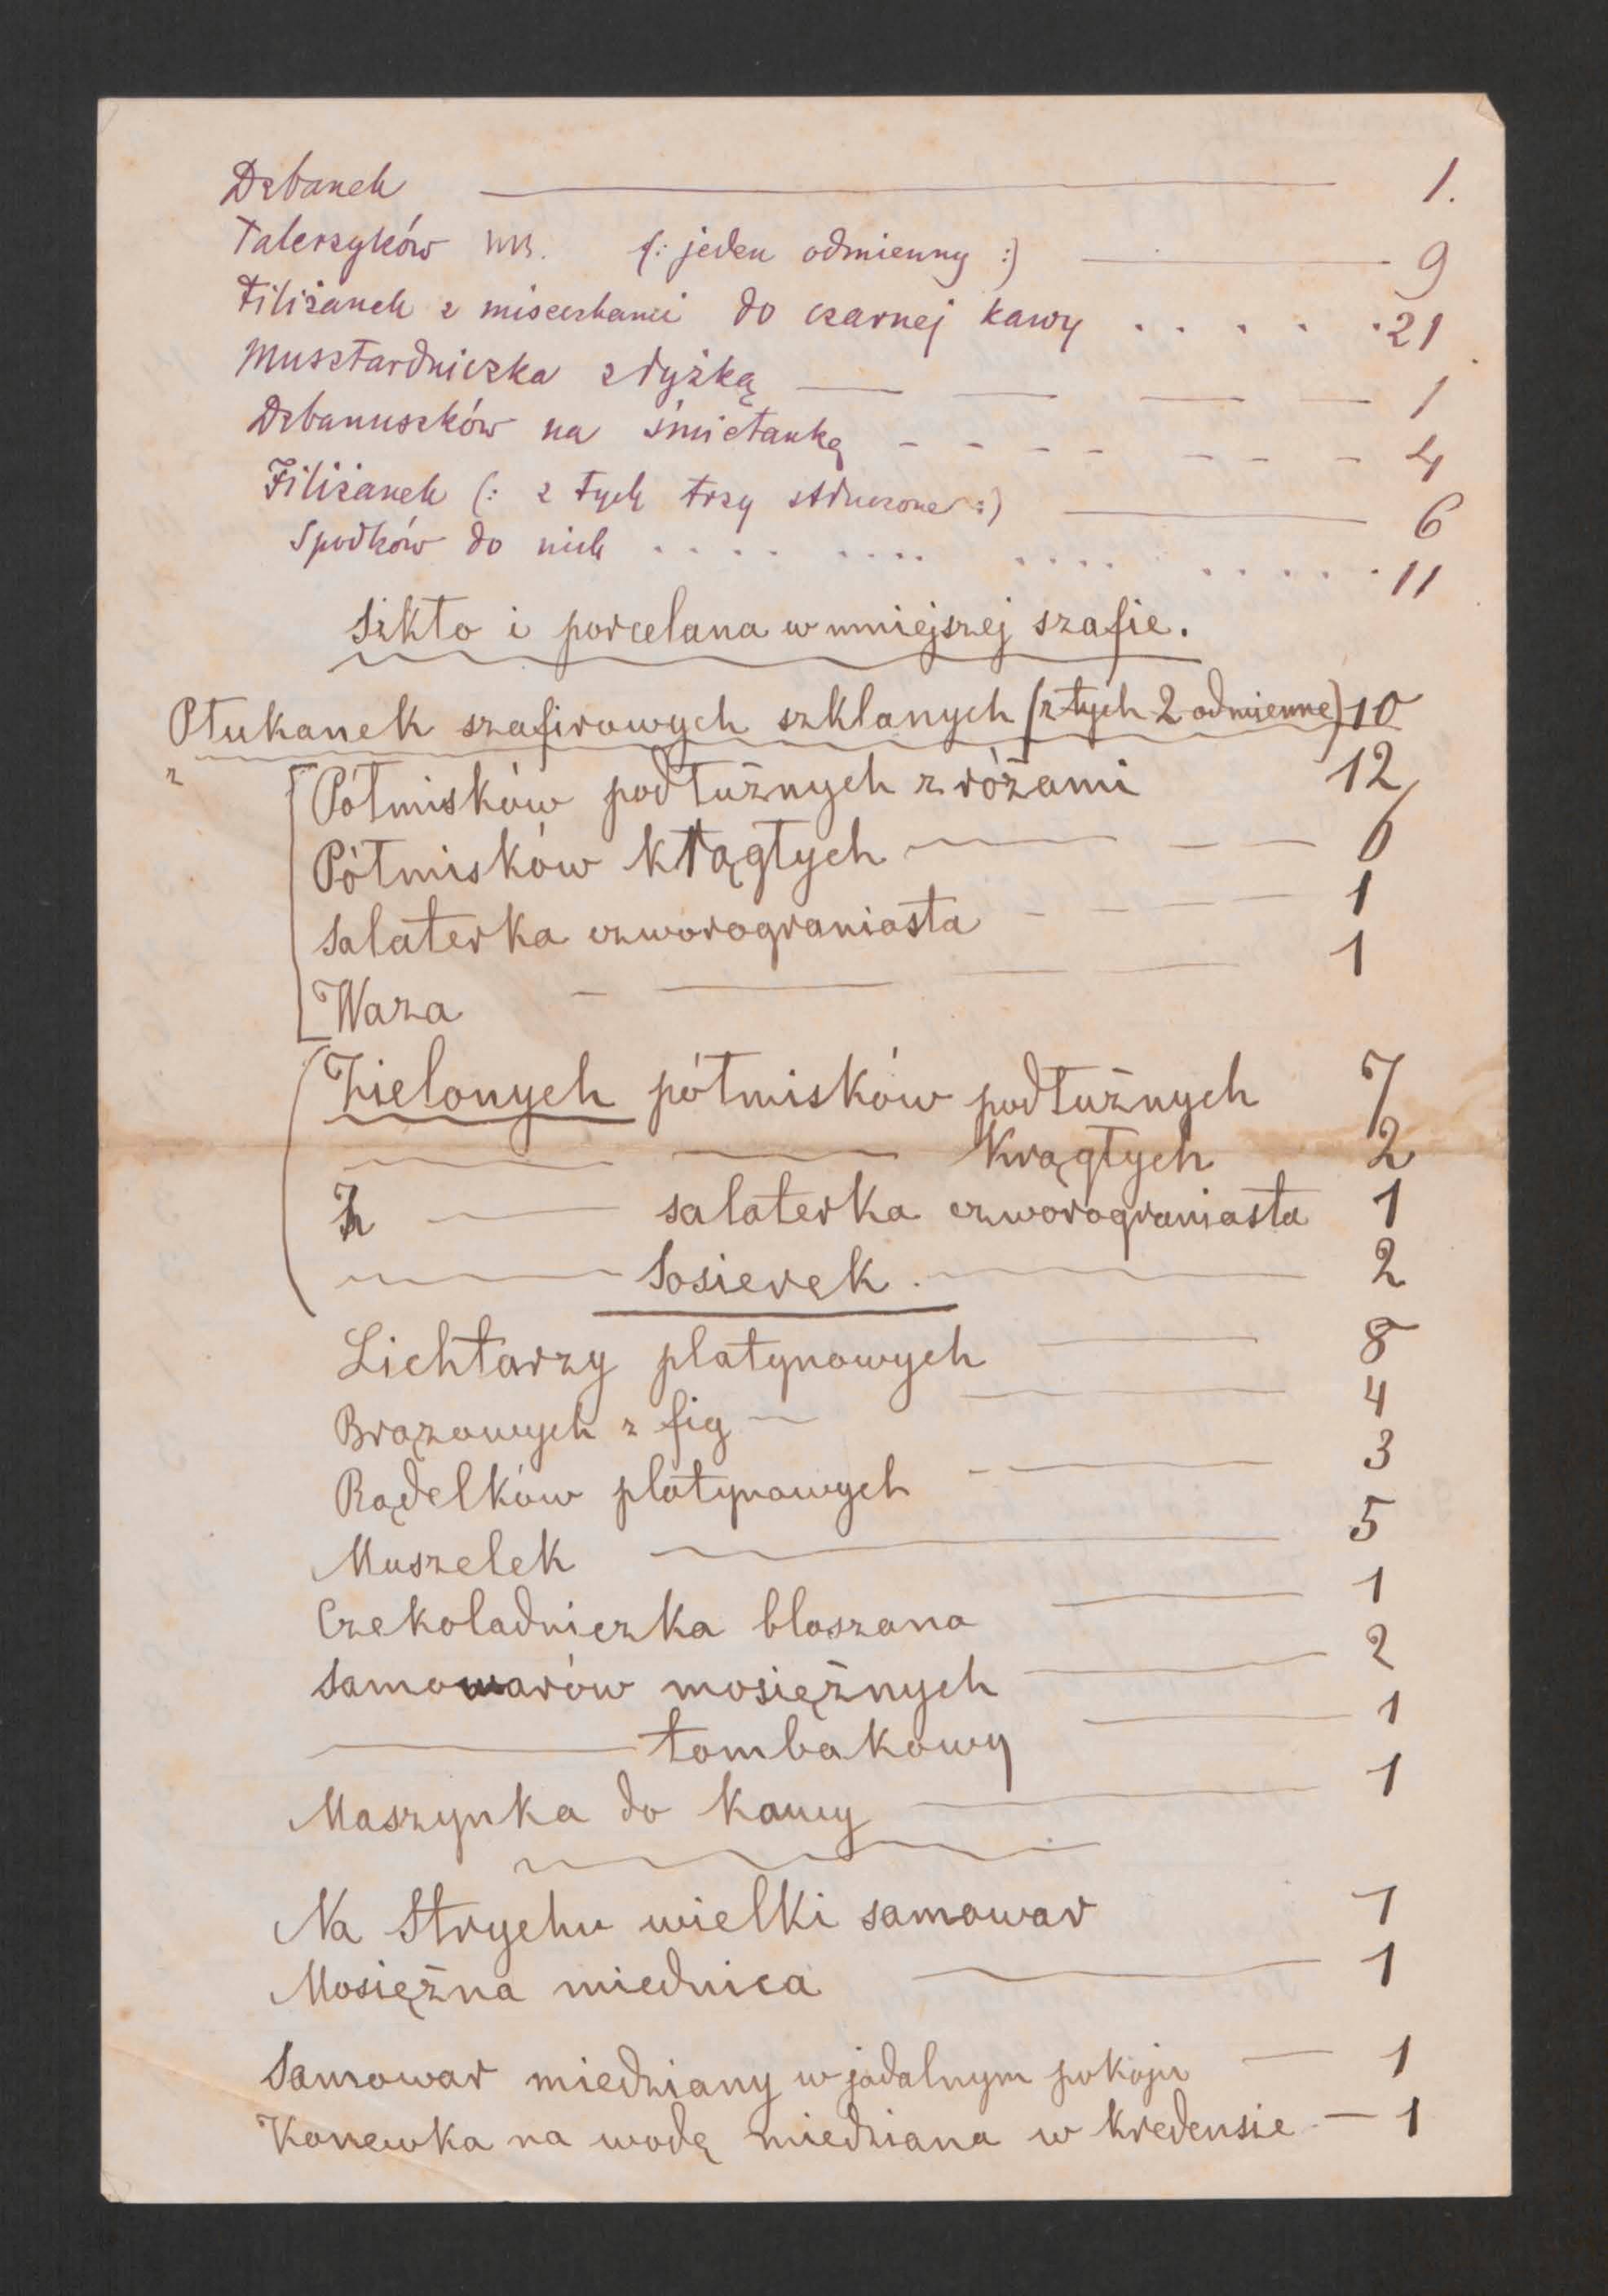 Dzbanek 1.
Talerzyków (: jeden odmienny :) 9
Filiżanek z miseczkami do czarnej kawy . . . . . 21
Musztardniczka z łyżką 1
Dzbanuszków na śmietankę - - - - - - - 4
Filiżanek (: z tych trzy stłuczone :) 6
Spodków do nich . . . . . . . . . . . . . . . . . 11
Szkło i porcelana w mniejszej szafie.
Płukanek szafirowych szklanych (z tych 2 odmienne) 10
z Półmisków podłużnych z różami 12
Półmisków krągłych 6
Salaterka czworograniasta 1
Waza 1
Zielonych półmisków podłużnych 7
krągłych 2
salaterka czworograniasta 1
Sosierek 2
Lichtarzy platynowych 8
Brązowych z fig 4
Rądelków platynowych 3
Muszelek 5
Czekoladniczka blaszana 1
Samowarów mosiężnych 2
tombakowy 1
Maszynka do kawy 1
Na Strychu wielki samowar 1
Mosiężna miednica 1
Samowar miedziany w jadalnym pokoju 1
Konewka na wodę miedziana w kredensie 1